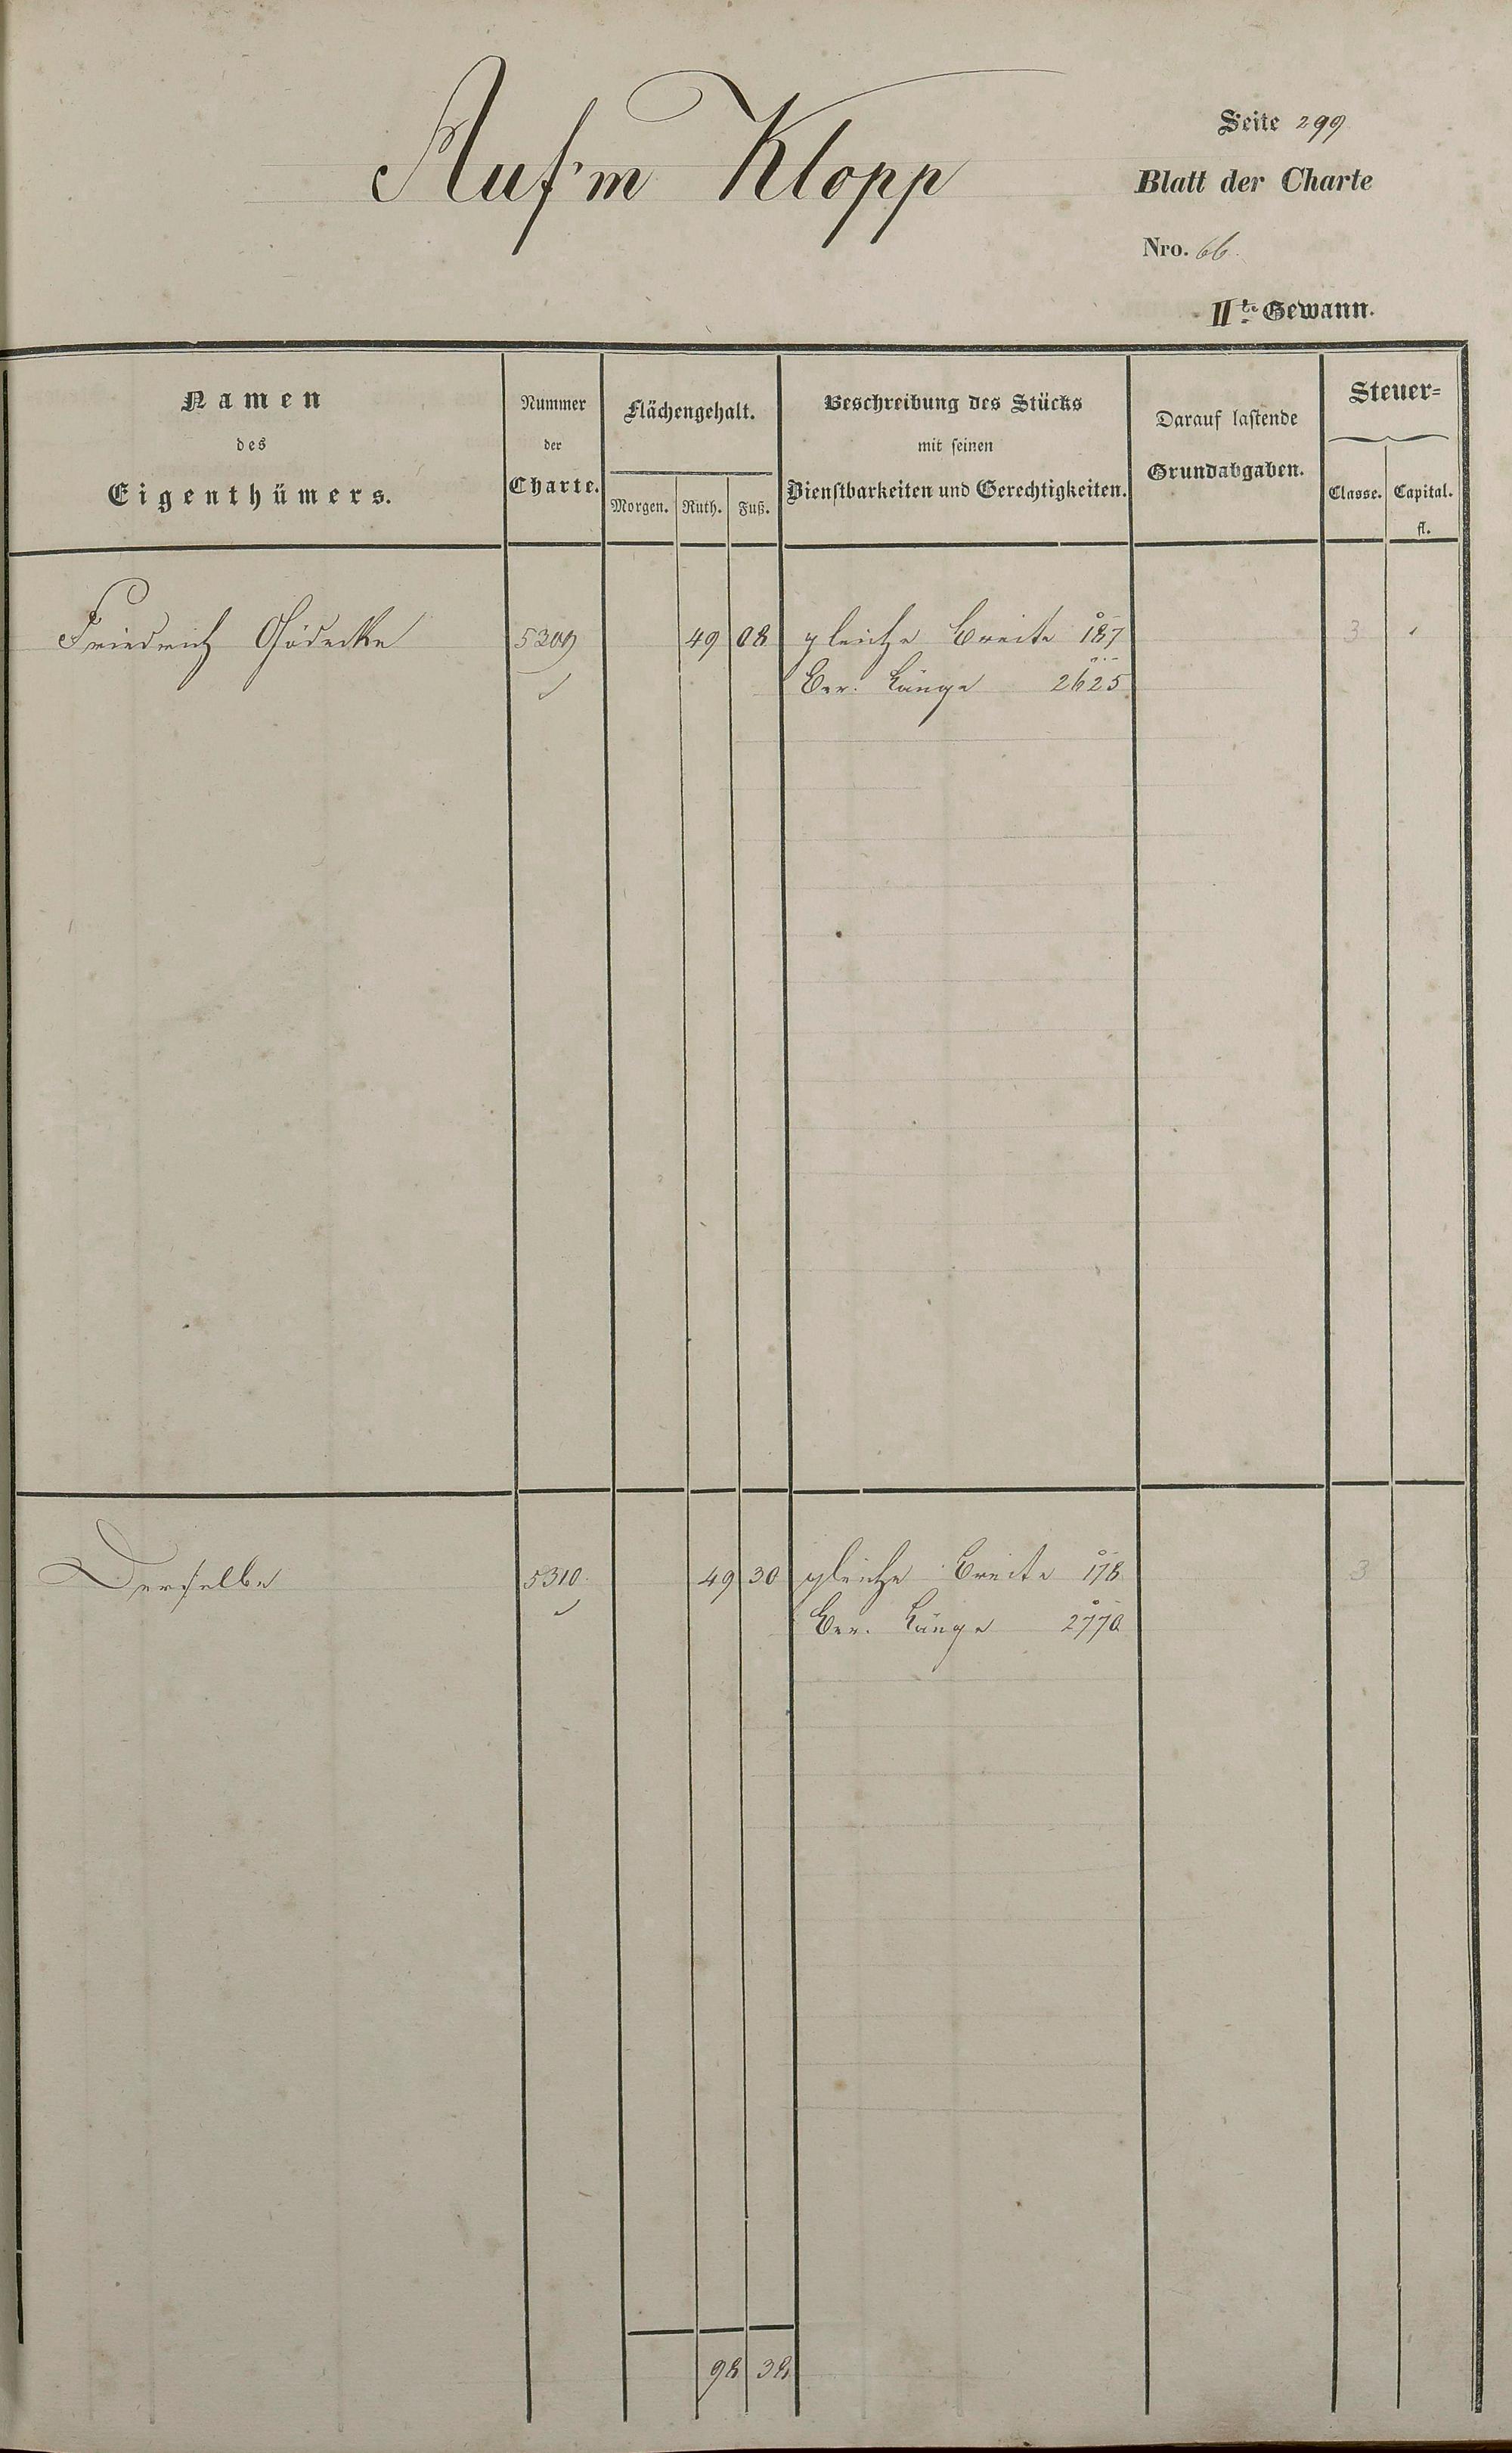 Auf'm Klopp
Seite 299
Blatt der Charte
Nro. 66.
IIte Gewann.
Namen
des
Eigenthümers.
Nummer
der
Charte.
Flächengehalt.
Morgen. Ruth. Fuß.
Beschreibung des Stücks
mit seinen
Dienstbarkeiten und Gerechtigkeiten.
Darauf lastende
Grundabgaben.
Steuer-
Classe. Capital.
fl.
Friedrich Gödecke 5309 49 08 gleiche Breite 187 3
Ber. Länge 2625
Derselbe 5310. 49 30 gleiche Breite 178 3
Ber. Länge 2770
98 38